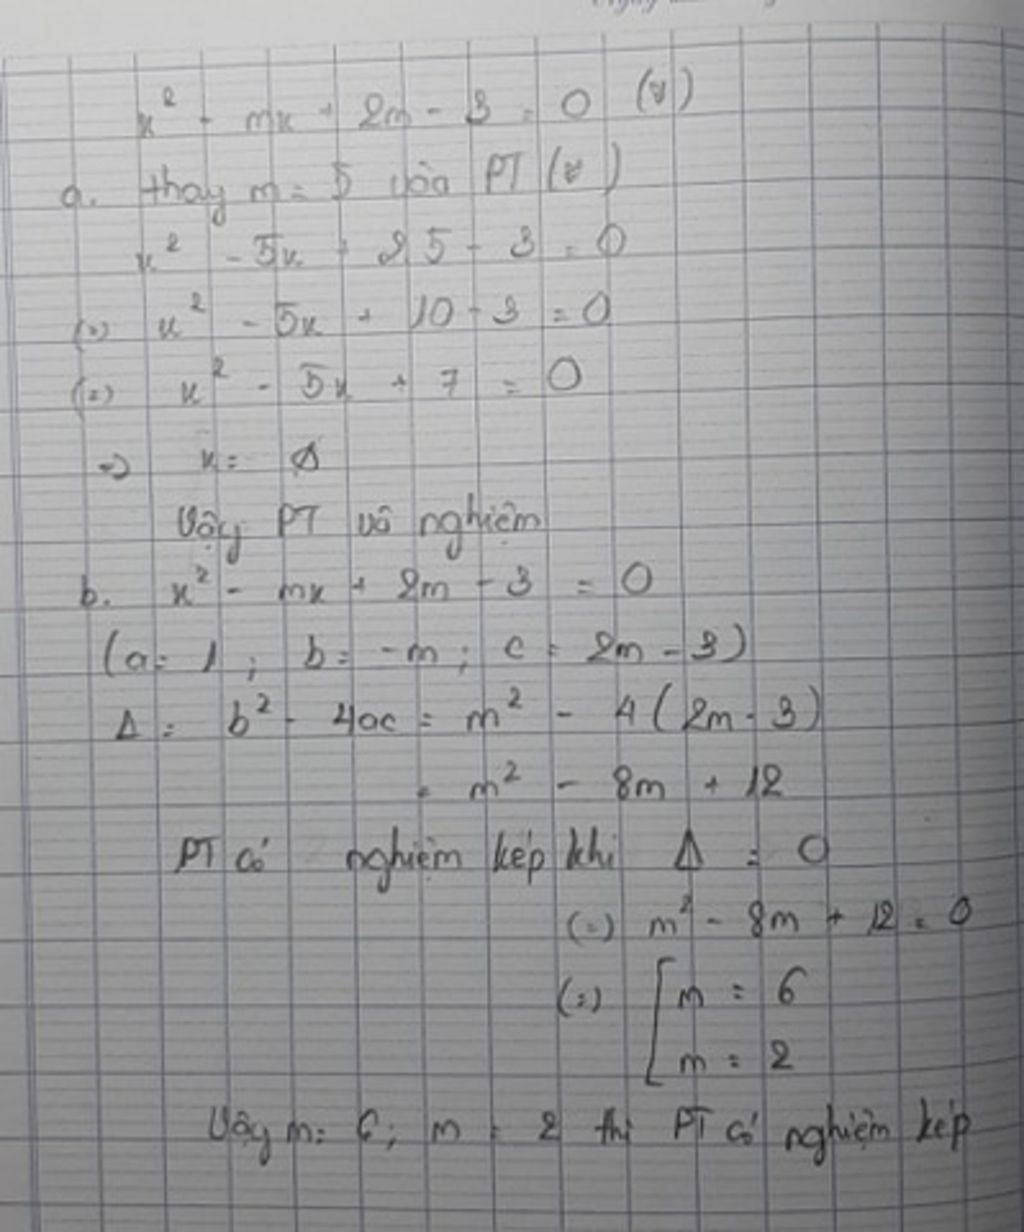 x² - mx + 2m - 3 = 0 (*)
a. thay m = 5 vào PT (*)
x² - 5x + 2.5 - 3 = 0
(=) x² - 5x + 10 - 3 = 0
(=) x² - 5x + 7 = 0
=> x = ∅
Vậy PT vô nghiệm
b. x² - mx + 2m - 3 = 0
(a = 1 ; b = -m ; c = 2m - 3)
Δ = b² - 4ac = m² - 4(2m - 3)
= m² - 8m + 12
PT có nghiệm kép khi Δ = 0
(=) m² - 8m + 12 = 0
(=) [ m = 6
m = 2
Vậy m = 6; m = 2 thì PT có nghiệm kép